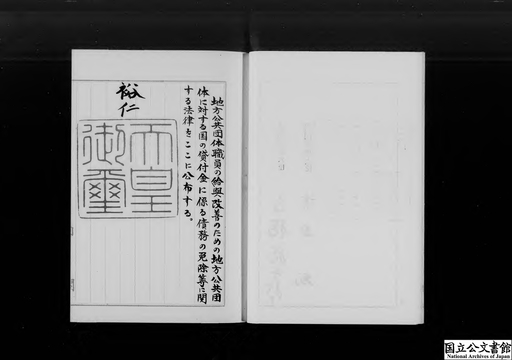 地方公共団体職員の給與改善のための地方公共団
体に対する国の貸付金に係る債務の免除等に関
する法律をここに公布する。
裕仁
天皇
御璽
国立公文書館
National Archives of Japan